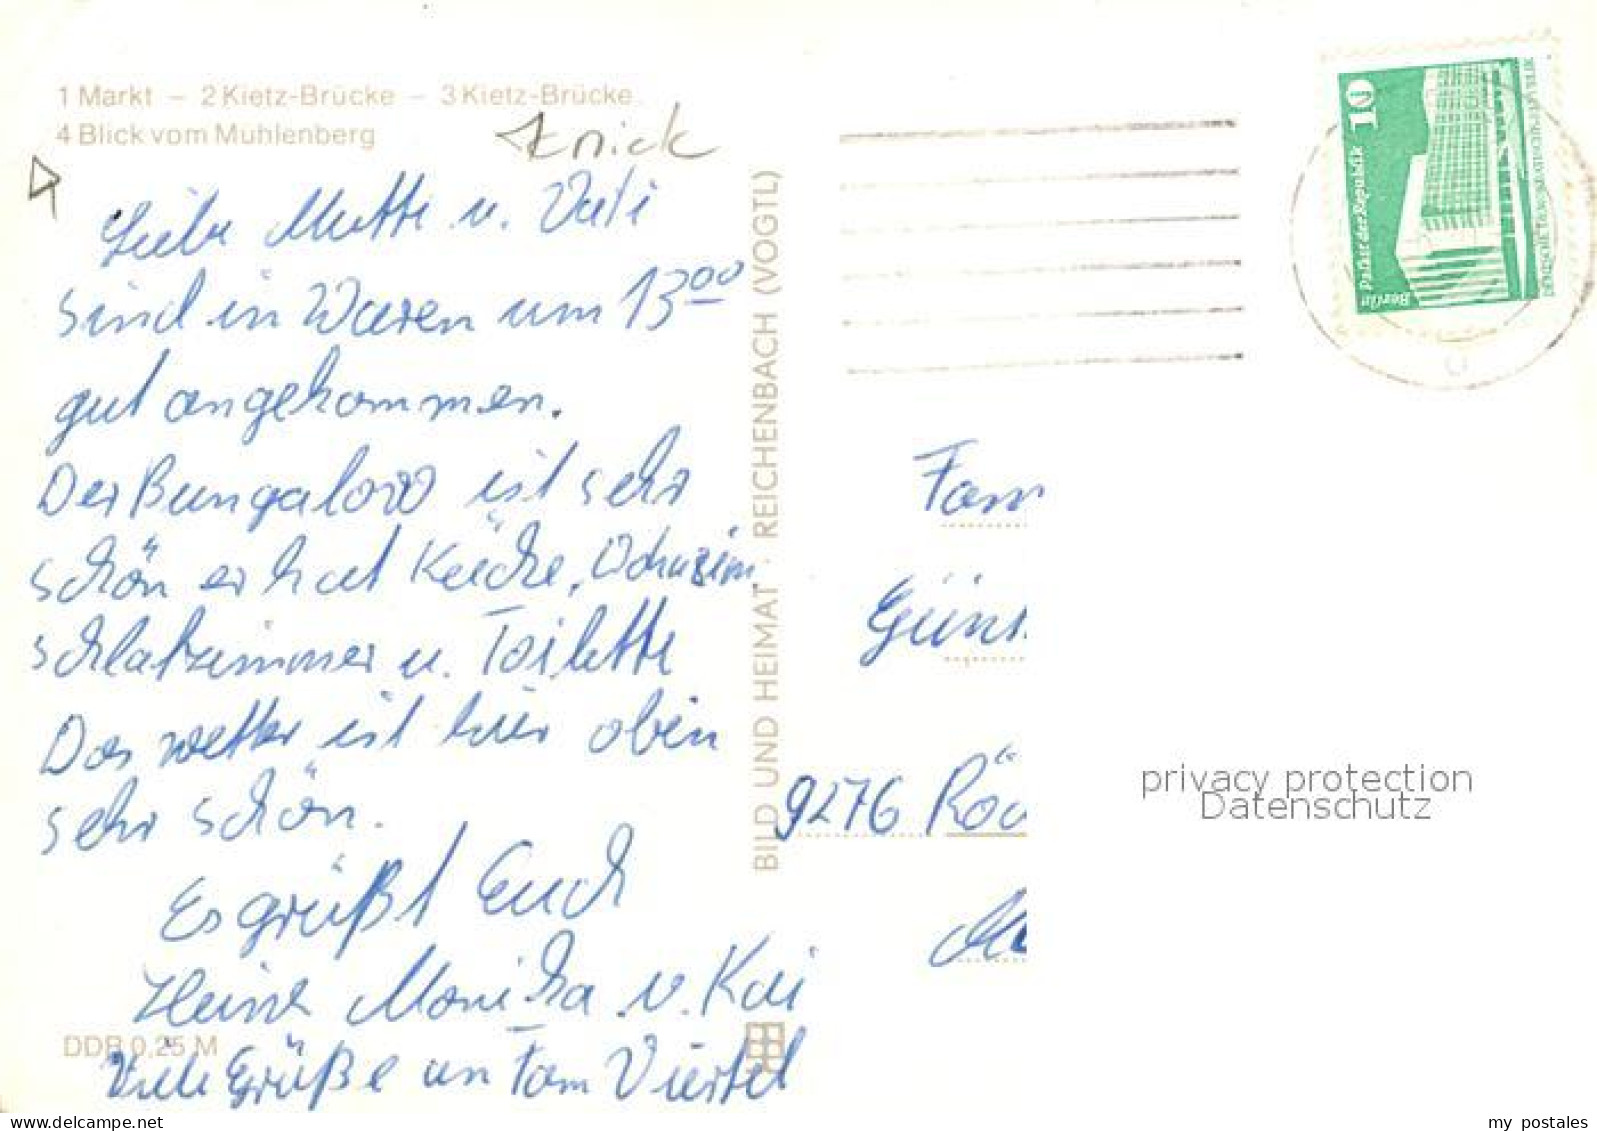 1 Markt – 2 Kietz-Brücke – 3 Kietz-Brücke
4 Blick vom Mühlenberg
knick
Liebe Mutti u. Vati
sind in Waren um 13⁰⁰
gut angekommen.
Der Bungalow ist sehr
schön er hat Küche,
Schlafzimmer u. Toilette
Das Wetter ist hier oben
sehr schön.
Es grüßt Euch
Heinz Monika u. Kai
Viele Grüße an Fam Viertel
DDR 0,25 M
BILD UND HEIMAT · REICHENBACH (VOGTL)
10
Palast der Republik
Berlin
Fam
Günt
9276 Rö
privacy protection
Datenschutz
www.delcampe.net
my_postales